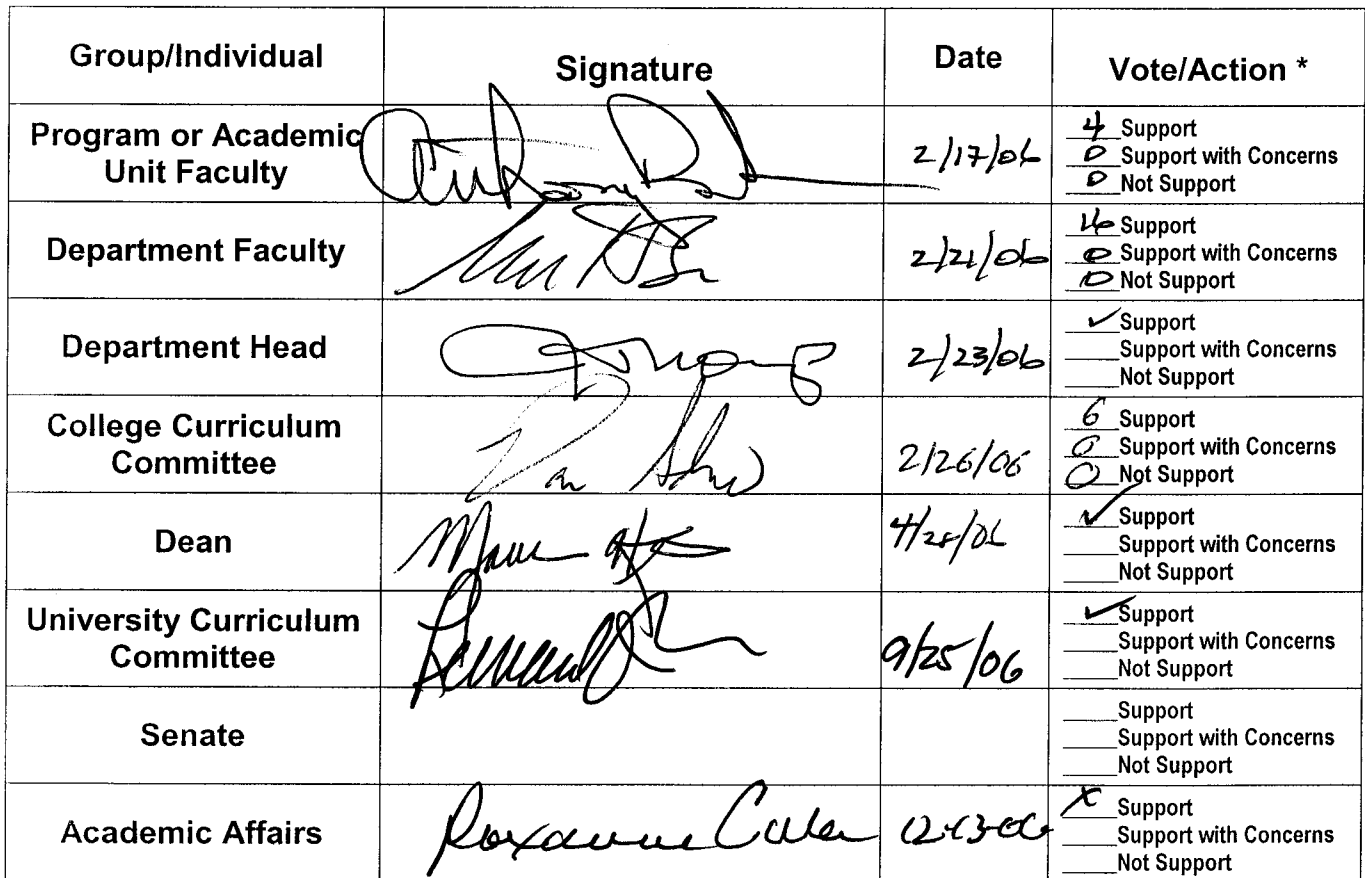 Group/Individual Signature Date Vote/Action *
Program or Academic Unit Faculty 2/17/06
4 Support
0 Support with Concerns
0 Not Support
Department Faculty 2/21/06
Support
0 Support with Concerns
0 Not Support
Department Head 2/23/06
✓ Support
Support with Concerns
Not Support
College Curriculum Committee 2/26/06
6 Support
0 Support with Concerns
0 Not Support
Dean 4/28/06
✓ Support
Support with Concerns
Not Support
University Curriculum Committee 9/25/06
✓ Support
Support with Concerns
Not Support
Senate
Support
Support with Concerns
Not Support
Academic Affairs Roxanne 12-13-06
X Support
Support with Concerns
Not Support